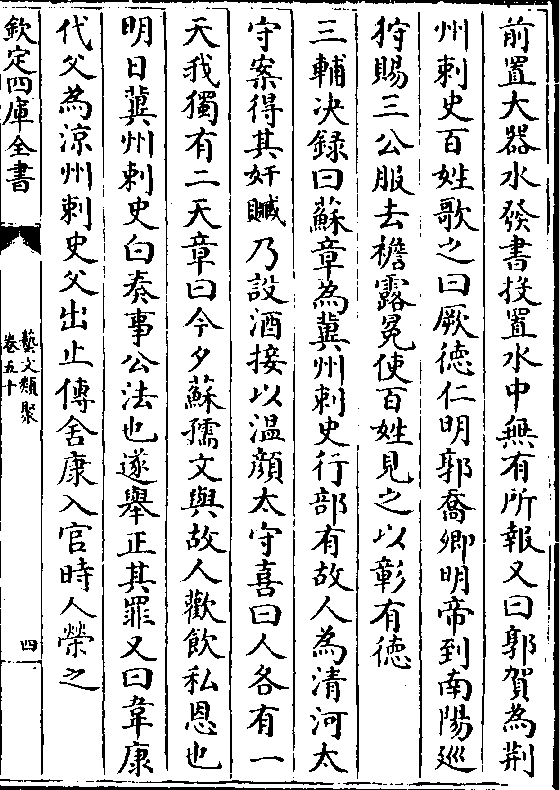 前置大器水發書投置水中無有所報又曰郭賀為荆
州刺史百姓歌之曰厥徳仁明郭喬卿明帝到南陽巡
狩賜三公服去襜露冕使百姓見之以彰有徳
三輔决録曰蘇章為冀州刺史行部有故人為清河太
守案得其奸贓乃設酒接以温顔太守喜曰人各有一
天我獨有二天章曰今夕蘇孺文與故人歡飲私恩也
明日冀州刺史白奏事公法也遂舉正其罪又曰韋康
代父為涼州刺史父出止傳舍康入官時人榮之
欽定四庫全書
藝文類聚
卷五十
四